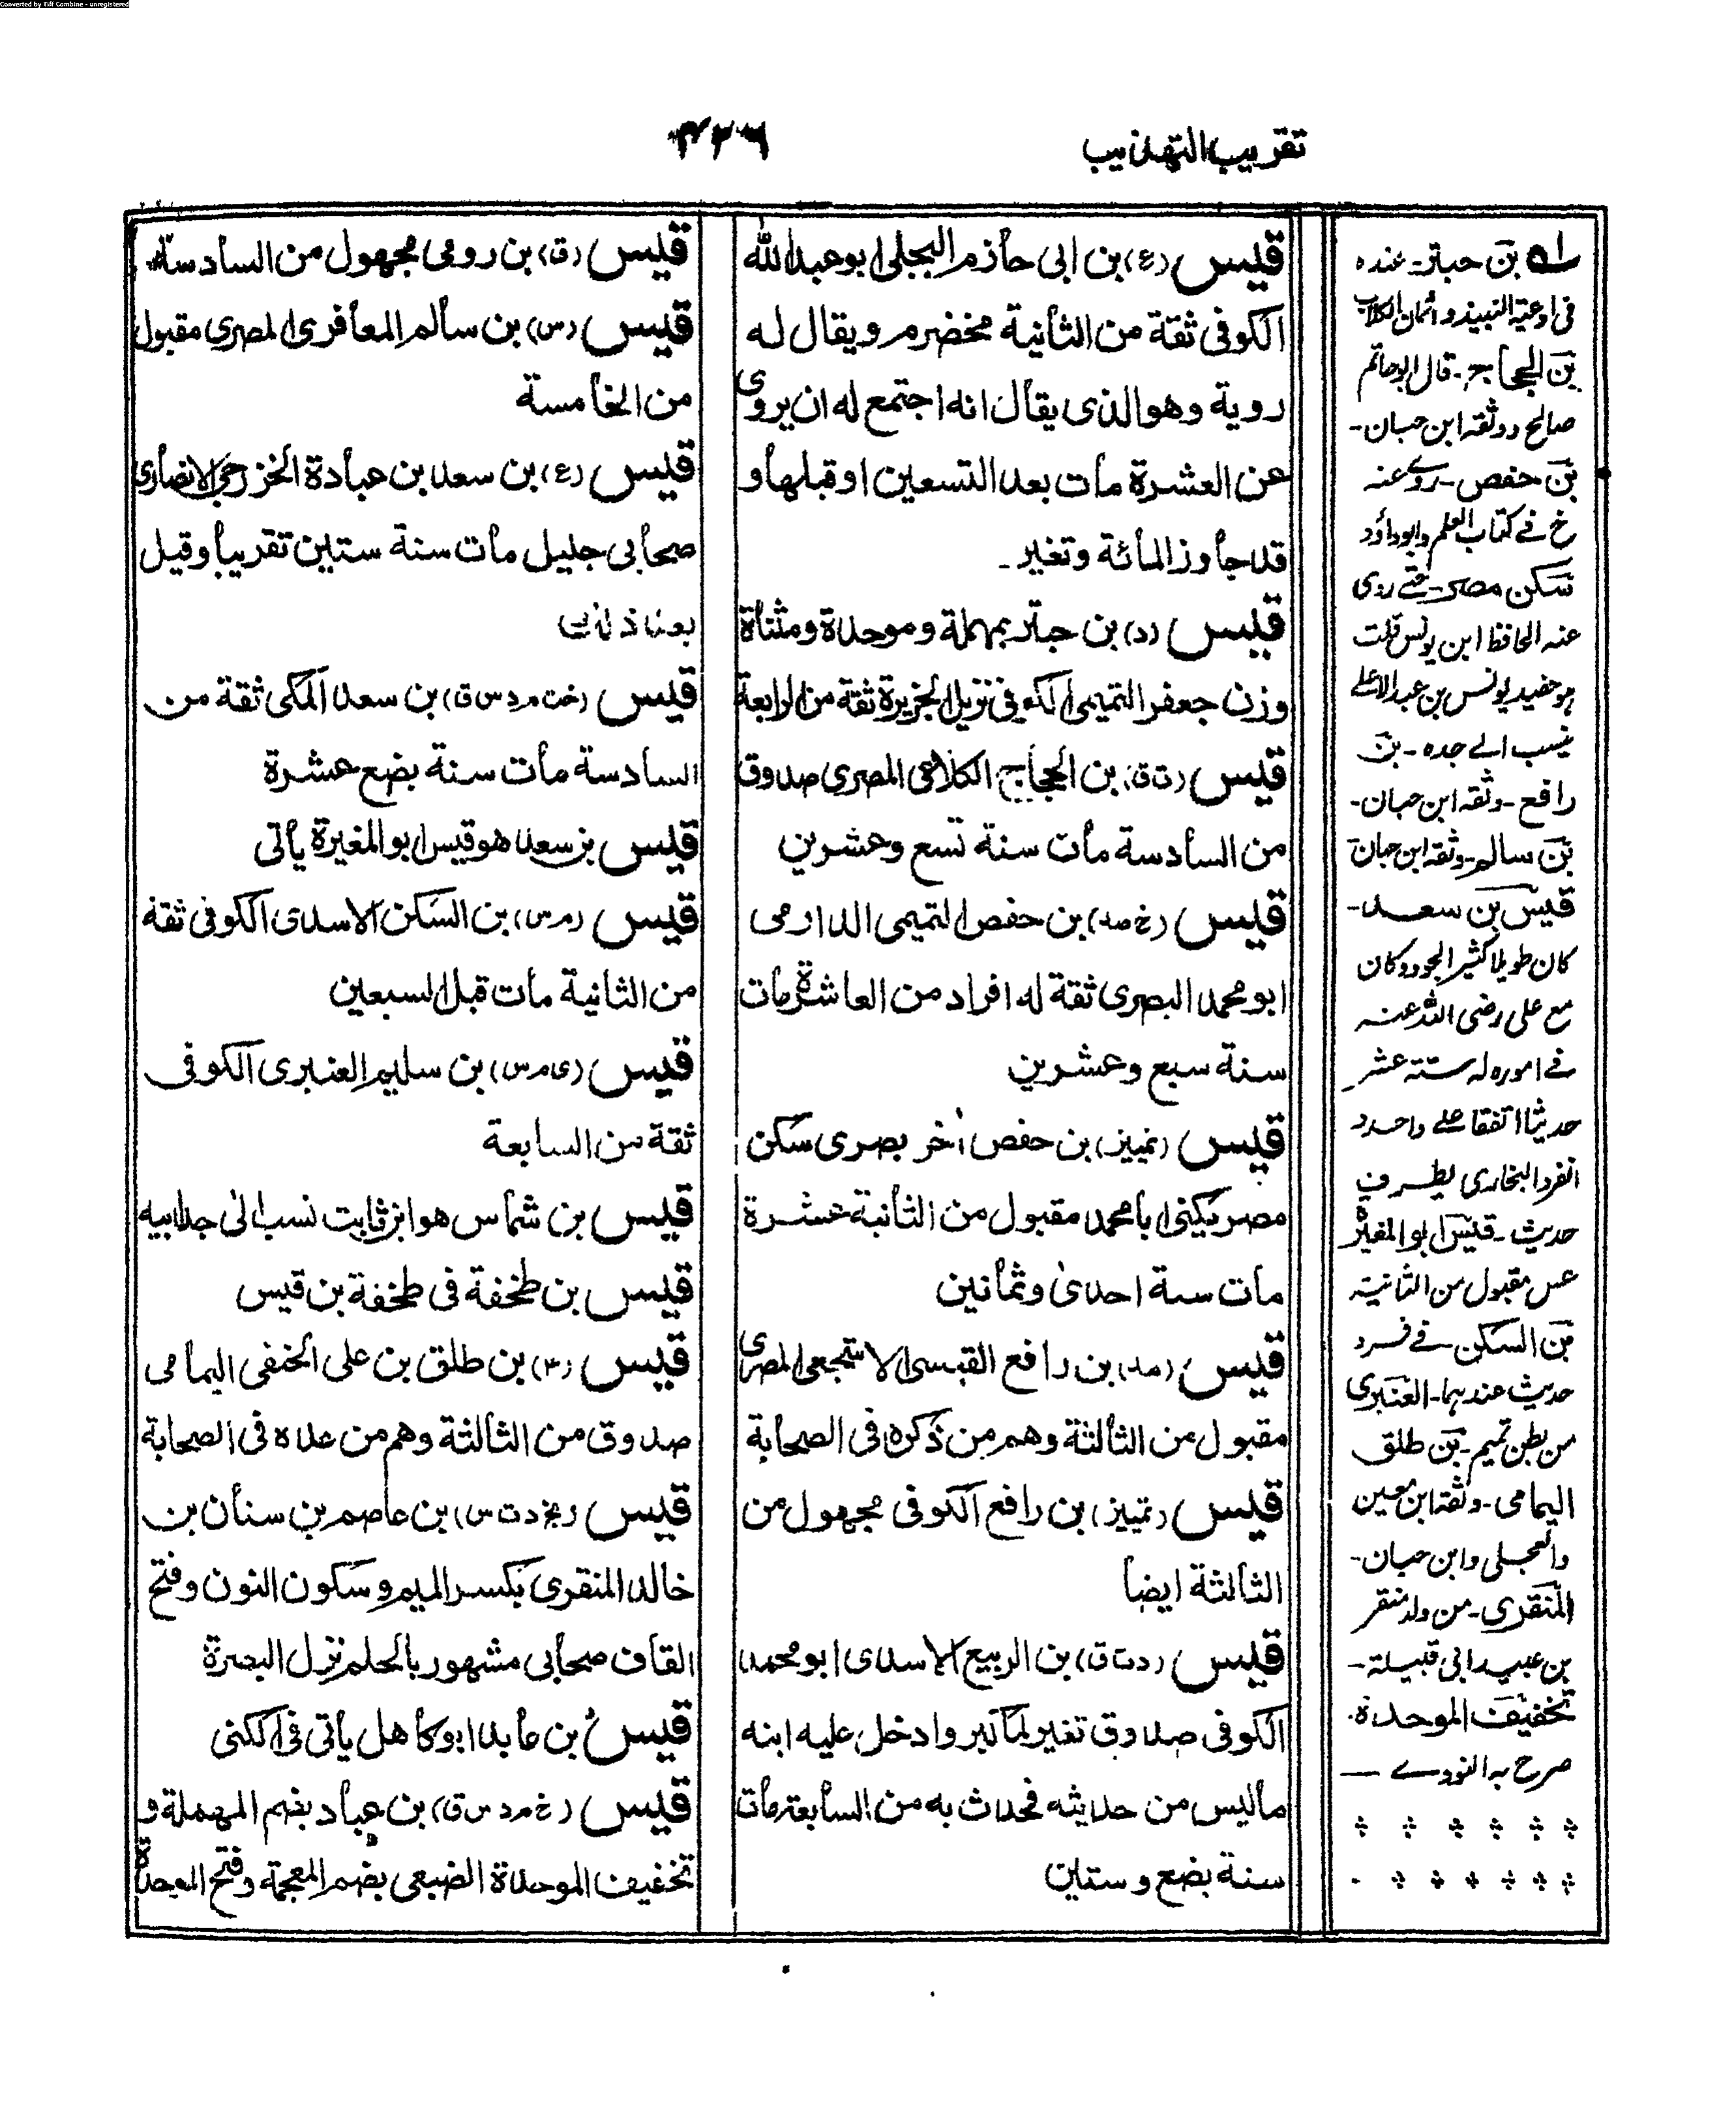 Converted by Tiff Combine - unregistered
تقريب التهذيب
٤٢٦
قيس (ع) بن ابى حازم البجلى ابو عبد الله
الكوفى ثقة من الثانية مخضرم ويقال له
روية وهو الذى يقال انه اجتمع له ان يروى
عن العشرة مات بعد التسعين او قبلها و
قد جاوز المائة وتغير -
قيس (د) بن حبتر بمهملة وموحدة ومثناة
وزن جعفر التميمى الكوفى نزيل الجزيرة ثقة من الرابعة
قيس (ت ق) بن الحجاج الكلاعى المصرى صدوق
من السادسة مات سنة تسع وعشرين
قيس (خ صد) بن حفص التميمى الدارمى
ابو محمد البصرى ثقة له افراد من العاشرة مات
سنة سبع وعشرين
قيس (تمييز) بن حفص آخر بصرى سكن
مصر يكنى ابا محمد مقبول من الثانية عشرة
مات سنة احدى وثمانين
قيس (مد) بن رافع القيسى الاشجعى المصرى
مقبول من الثالثة وهم من ذكره فى الصحابة
قيس (تمييز) بن رافع الكوفى مجهول من
الثالثة ايضا
قيس (د ت ق) بن الربيع الاسدى ابو محمد
الكوفى صدوق تغير لما كبر وادخل عليه ابنه
ما ليس من حديثه فحدث به من السابعة مات
سنة بضع وستين
قيس (ق) بن رومى مجهول من السادسة
قيس (س) بن سالم المعافرى المصرى مقبول
من الخامسة
قيس (ع) بن سعد بن عبادة الخزرجى الانصارى
صحابى جليل مات سنة ستين تقريبا وقيل
بعد ذلك
قيس (خت م د س ق) بن سعد المكى ثقة من
السادسة مات سنة بضع عشرة
قيس بن سعد هو قيس ابو المغيرة يأتى
قيس (م س) بن السكن الاسدى الكوفى ثقة
من الثانية مات قبل السبعين
قيس (ى م س) بن سليم العنبرى الكوفى
ثقة من السابعة
قيس بن شماس هو ابن ثابت نسب الى جد ابيه
قيس بن طخفة فى طخفة بن قيس
قيس (٣) بن طلق بن على الحنفى اليمامى
صدوق من الثالثة وهم من عده فى الصحابة
قيس (بخ د ت س) بن عاصم بن سنان بن
خالد المنقرى بكسر الميم وسكون النون وفتح
القاف صحابى مشهور بالحلم نزل البصرة
قيس بن عايد ابو كاهل يأتى فى الكنى
قيس (خ م د س ق) بن عباد بضم المهملة و
تخفيف الموحدة الضبعى بضم المعجمة وفتح الموحدة
بن حبتر - عنده
فى اوعية النبيذ واثمان الكلاب
بن الحجاج - قال ابو حاتم
صالح ووثقه ابن حبان -
بن حفص - روے عنه
خ فے كتاب العلم وابو داؤد
سكن مصر - حتے روى
عنه الحافظ ابن يونس قلت
هو حفيد يونس بن عبد الاعلے
نسب الے جده - بن
رافع - وثقه ابن حبان -
بن سالم - وثقه ابن حبان
قيس بن سعد -
كان طويلا كثير الجود وكان
مع على رضى الله عنه
فے اموره له ستة عشر
حديثا اتفقا علے واحد و
انفرد البخارى بطرف
حديث - قيس ابو المغيرة
عس مقبول من الثانية
بن السكن - فے فرد
حديث عندهما - العنبرى
من بطن تميم - بن طلق
اليمامى - وثقه ابن معين
والعجلى وابن حبان -
المنقرى - من ولد منقر
بن عبيد ابى قبيلة -
تخفيف الموحدة -
صرح به النووے —